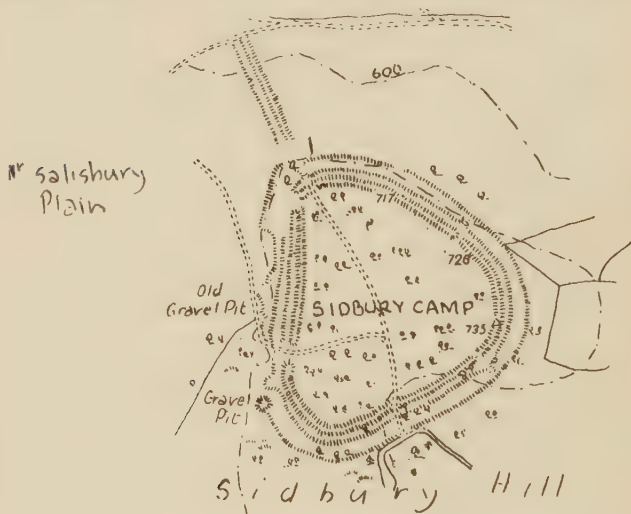 600
Nr Salisbury
Plain
717
728
Old
Gravel Pit
SIDBURY CAMP
735
Gravel
Pit
Sidbury Hill